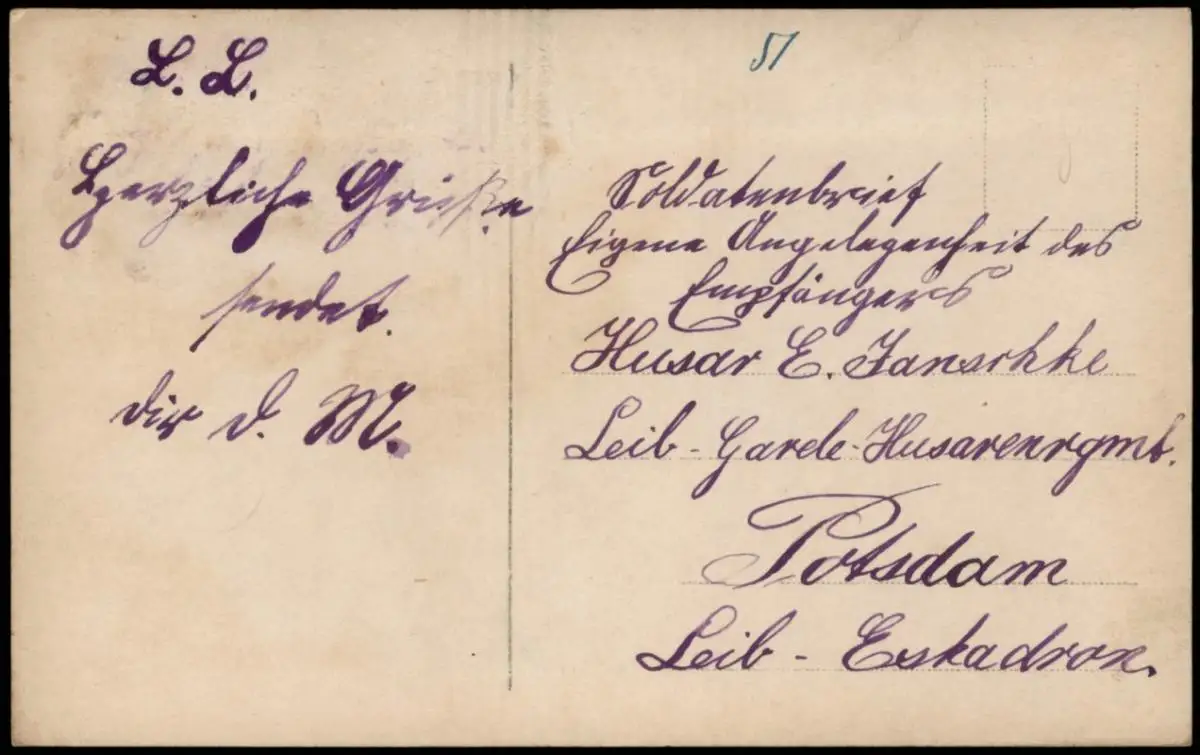 L. L.
Herzliche Grüße
sendet.
dir d. M.
51
Soldatenbrief
Eigene Angelegenheit des
Empfängers
Husar E. Janschke
Leib-Garde-Husarenrgmt.
Potsdam
Leib-Eskadron.